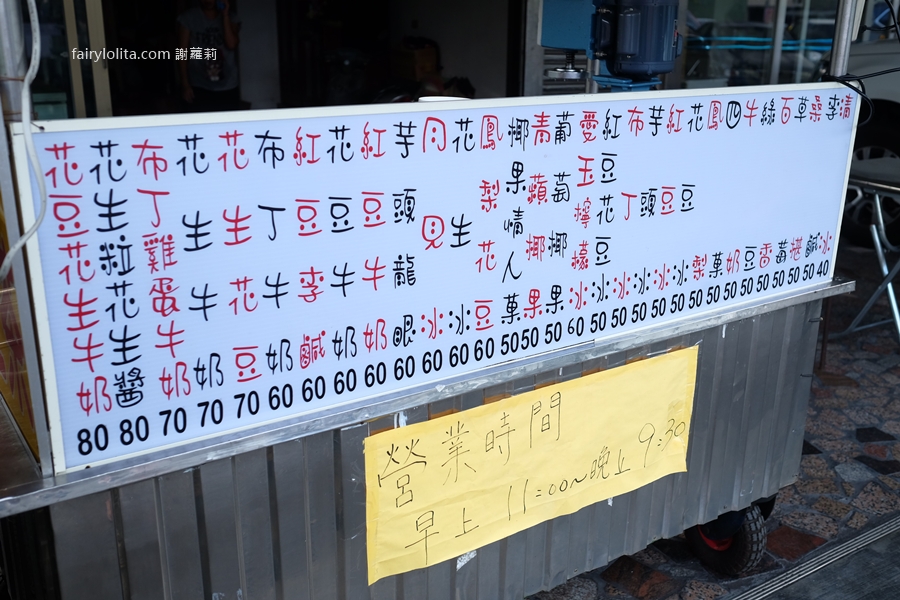 fairylolita.com 謝蘿莉
花豆花生牛奶 80
花生粒花生醬 80
布丁雞蛋牛奶 70
花生牛奶 70
花生花豆 70
布丁牛奶 60
紅豆李鹹 60
花豆牛奶 60
紅豆牛奶 60
芋頭龍眼 60
月見冰 60
花生冰 60
鳳梨花豆 60
椰果情人菓 50
青蘋椰果 50
葡萄椰果 50
愛玉檸檬冰 60
紅豆花豆冰 50
布丁冰 50
芋頭冰 50
紅豆冰 50
花豆冰 50
鳳梨 50
菓 50
牛奶 50
綠豆 50
百香 50
草 50
桑椹 50
李鹹 50
清冰 40
營業時間
早上 11:00~晚上 9:30